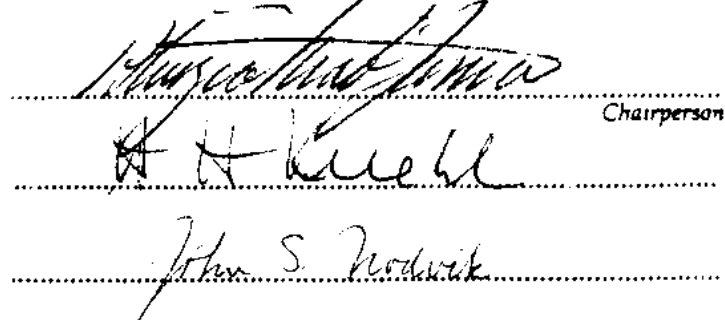 Chairperson
H H Kuehl
John S. Nodvik